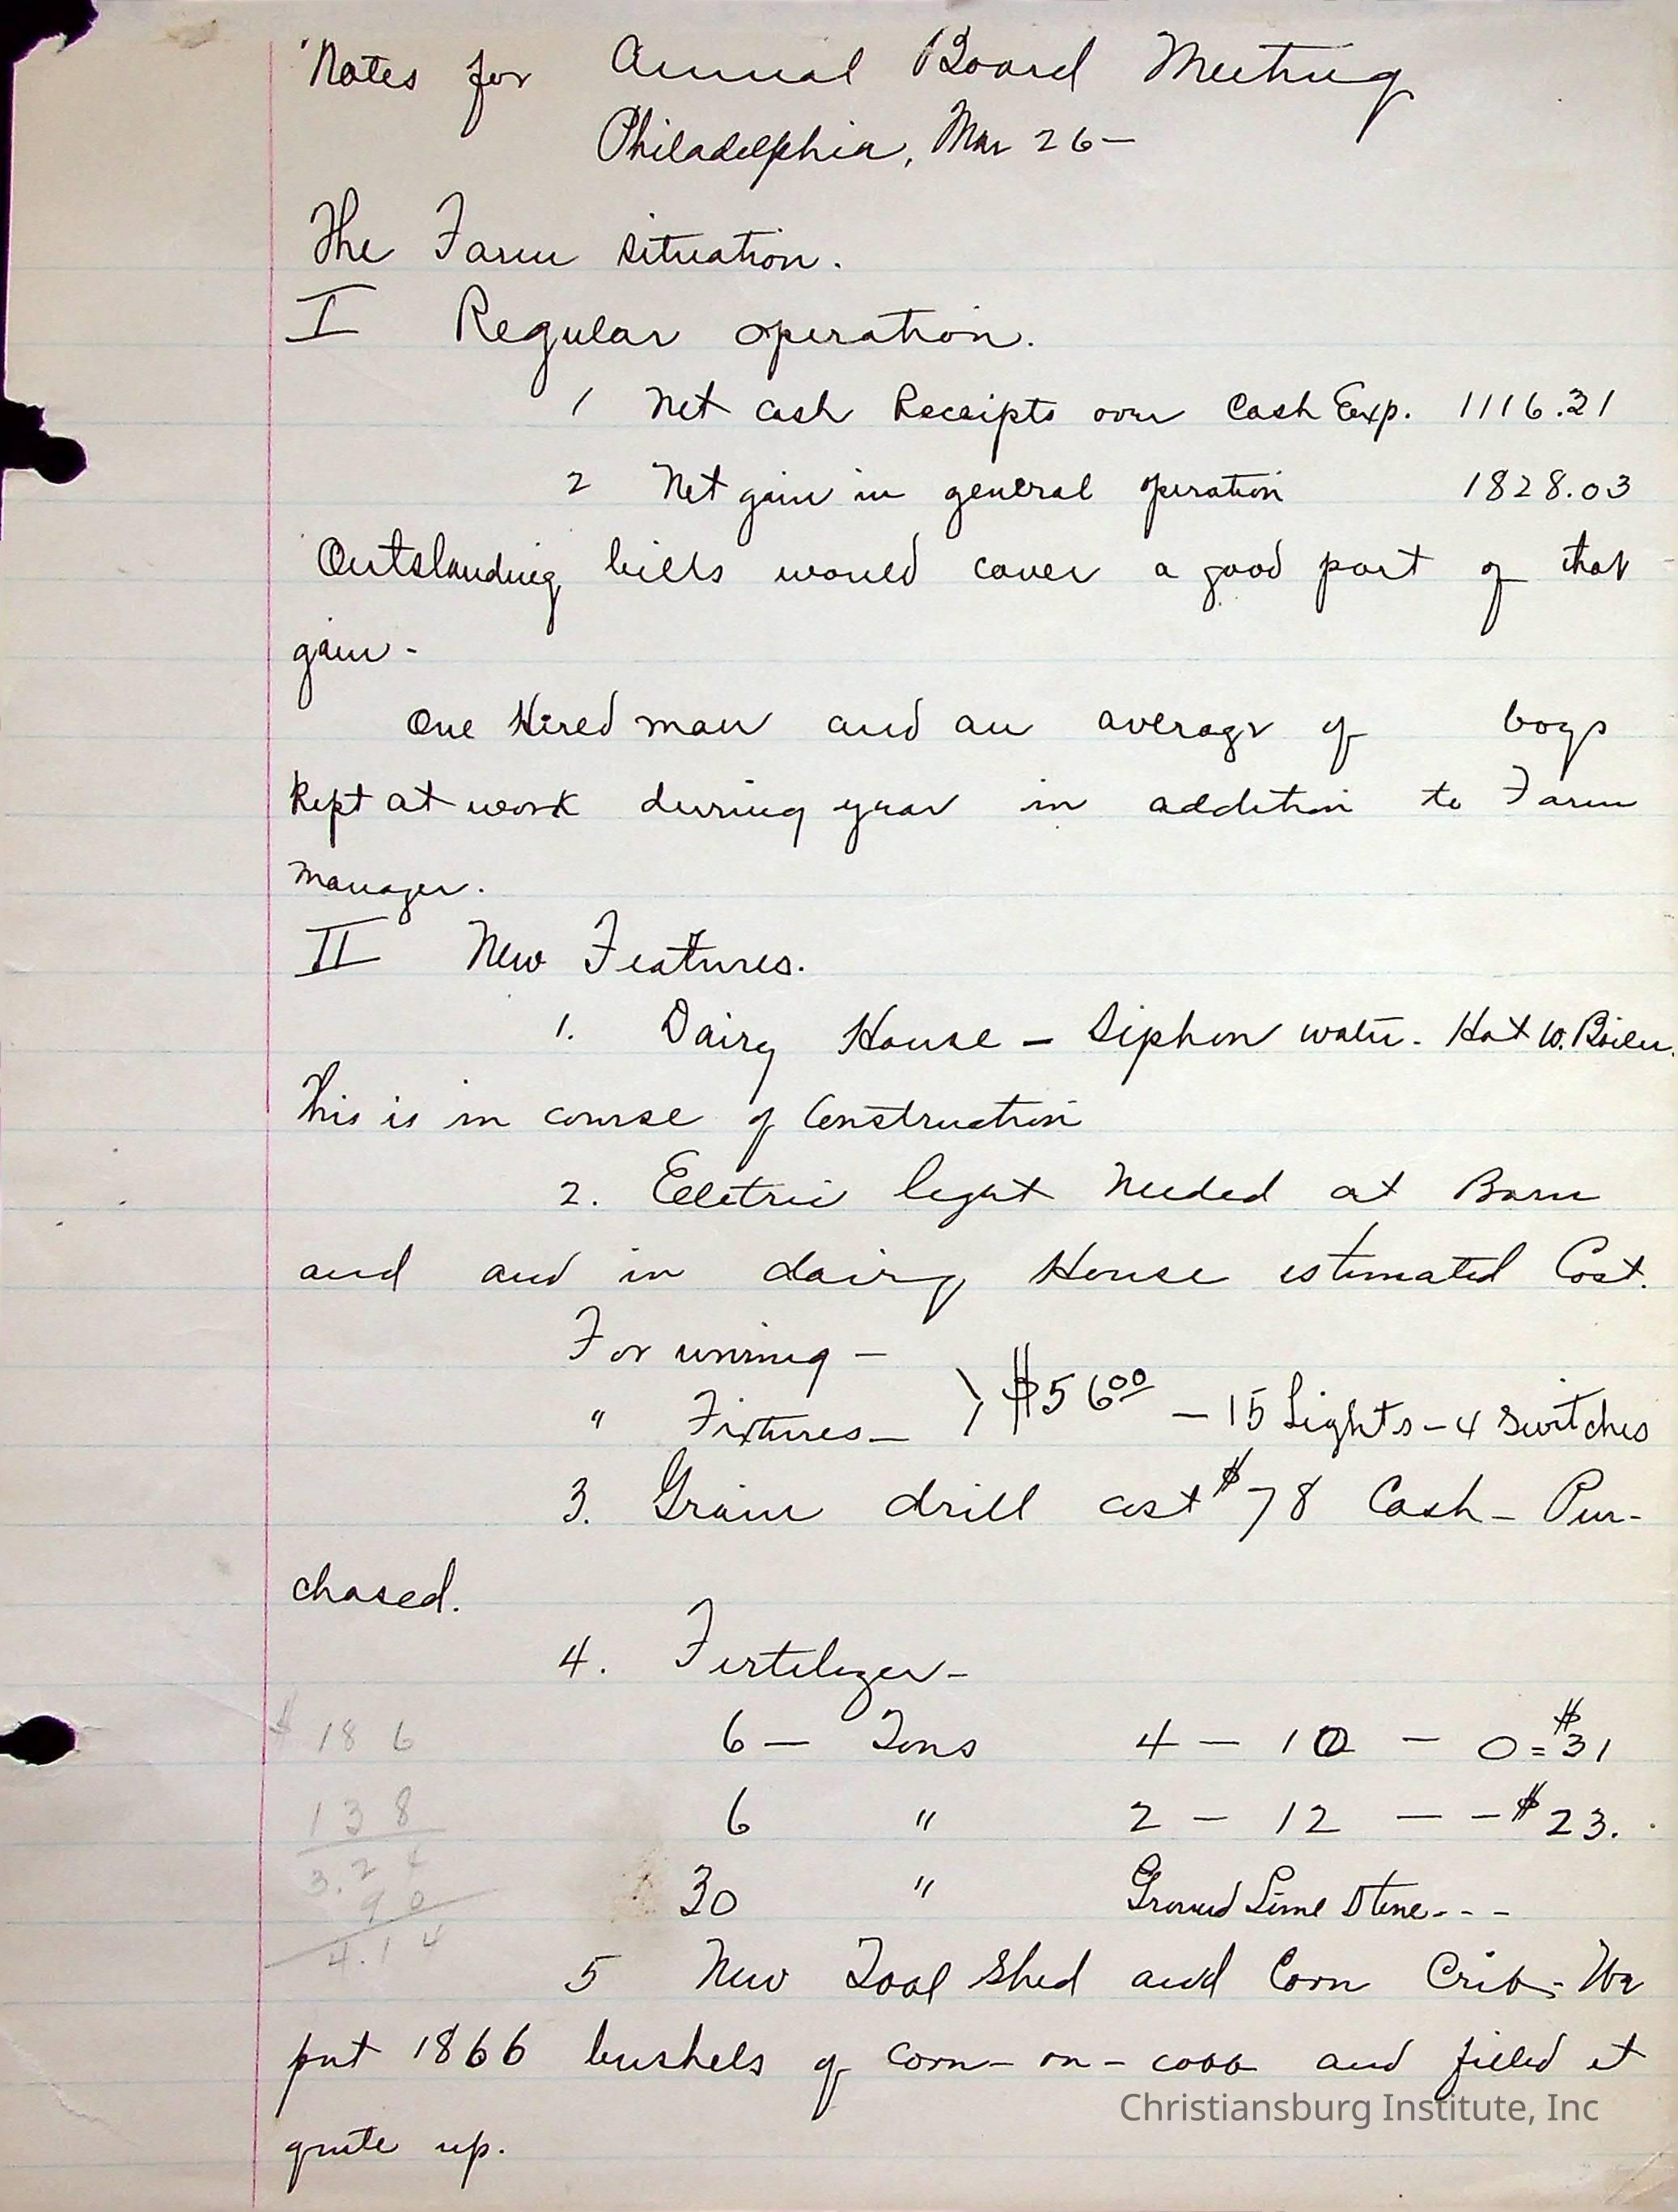 Notes for Annual Board Meeting
Philadelphia, Mar 26—
The Farm situation.
I Regular operation.
1 Net cash Receipts over Cash Exp. 1116.21
2 Net gain in general operation 1828.03
Outstanding bills would cover a good part of that
gain -
One Hired man and an average of boys
Kept at work during year in addition to Farm
manager.
II New Features.
1. Dairy House — Siphon water. Hot W. Boiler.
This is in course of Construction
2. Electric light needed at Barn
and and in dairy House estimated Cost.
For wiring —
" Fixtures — } $56.00 — 15 Lights — 4 Switches
3. Grain drill cost $78 Cash — Pur-
chased.
4. Fertilizer —
$ 186
6 — Tons 4 — 10 — 0 = $31
138
6 " 2 — 12 — — $23.
3.24
90
30 " Ground Lime Stone - - -
4.14
5 New Tool Shed and Corn Crib - We
put 1866 bushels of corn - on - cobb and filled it
quite up.
Christiansburg Institute, Inc